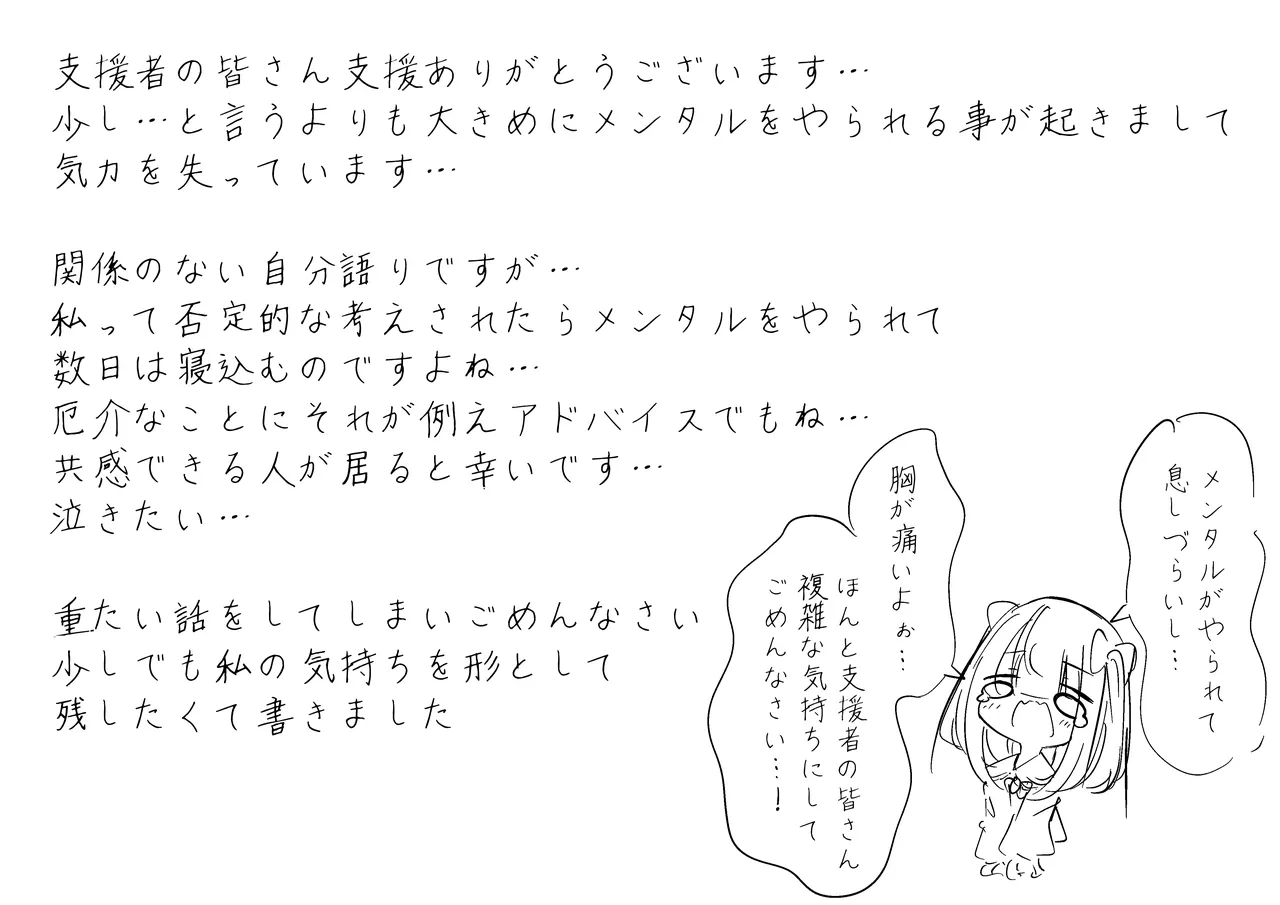 支援者の皆さん支援ありがとうございます…
少し…と言うよりも大きめにメンタルをやられる事が起きまして
気力を失っています…
関係のない自分語りですが…
私って否定的な考えされたらメンタルをやられて
数日は寝込むのですよね…
厄介なことにそれが例えアドバイスでもね…
共感できる人が居ると幸いです…
泣きたい…
重たい話をしてしまいごめんなさい
少しでも私の気持ちを形として
残したくて書きました
メンタルがやられて
息しづらいし…
胸が痛いよぉ…
ほんと支援者の皆さん
複雑な気持ちにして
ごめんなさい…！